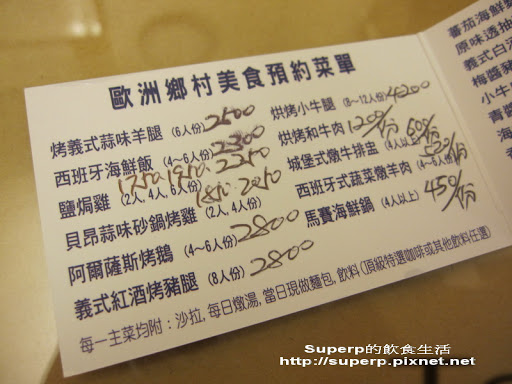 歐洲鄉村美食預約菜單
烤義式蒜味羊腿 (6人份) 2500
西班牙海鮮飯 (4~6人份) 2300
鹽焗雞 (2人, 4人, 6人份) 1750 1950 2250
貝昂蒜味砂鍋烤雞 (2人, 4人份) 1850 2050
阿爾薩斯烤鵝 (4~6人份) 2800
義式紅酒烤豬腿 (8人份) 2800
烘烤小牛腿 (8~12人份) 4200
烘烤和牛肉 1200/份
城堡式燉牛排盅 (4人以上) 600/份
西班牙式蔬菜燉羊肉 (4~5人份)
馬賽海鮮鍋 (4人以上) 450/份
每一主菜均附：沙拉, 每日燉湯, 當日現做麵包, 飲料 (頂級特選咖啡或其他飲料任選)
番茄海鮮
原味透抽
義式白
梅醬
小牛
青醬
海
Superp的飲食生活
http://superp.pixnet.net